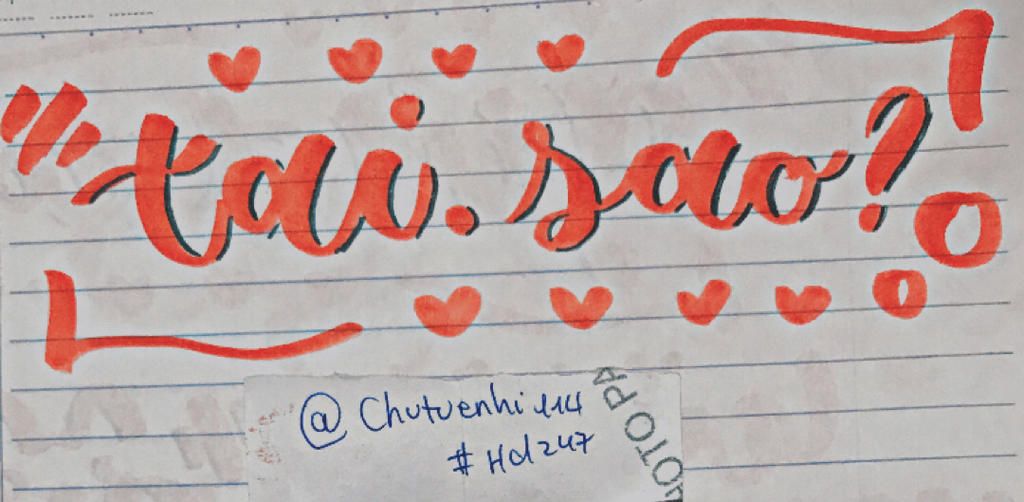 tai. sao?
@Chutuenhi114
#Hd247
OTO PA